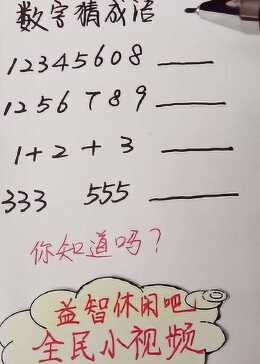 数字猜成语
12345608
1256789
1+2+3
333 555
你知道吗?
益智休闲吧
全民小视频